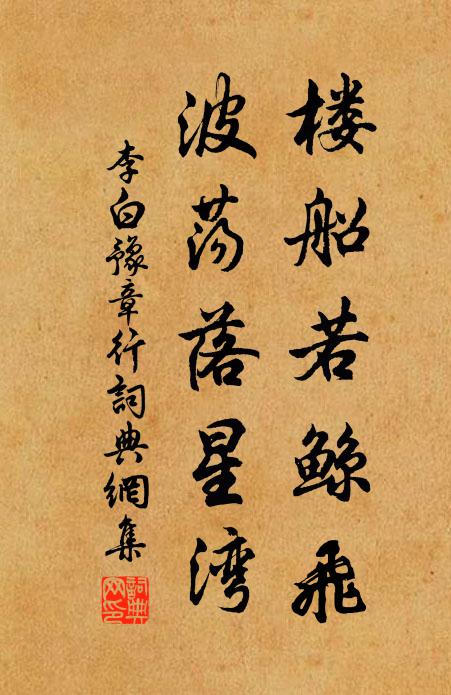 楼船若鲸飛
波荡落星湾
李白豫章行詞典網集
詞典網印